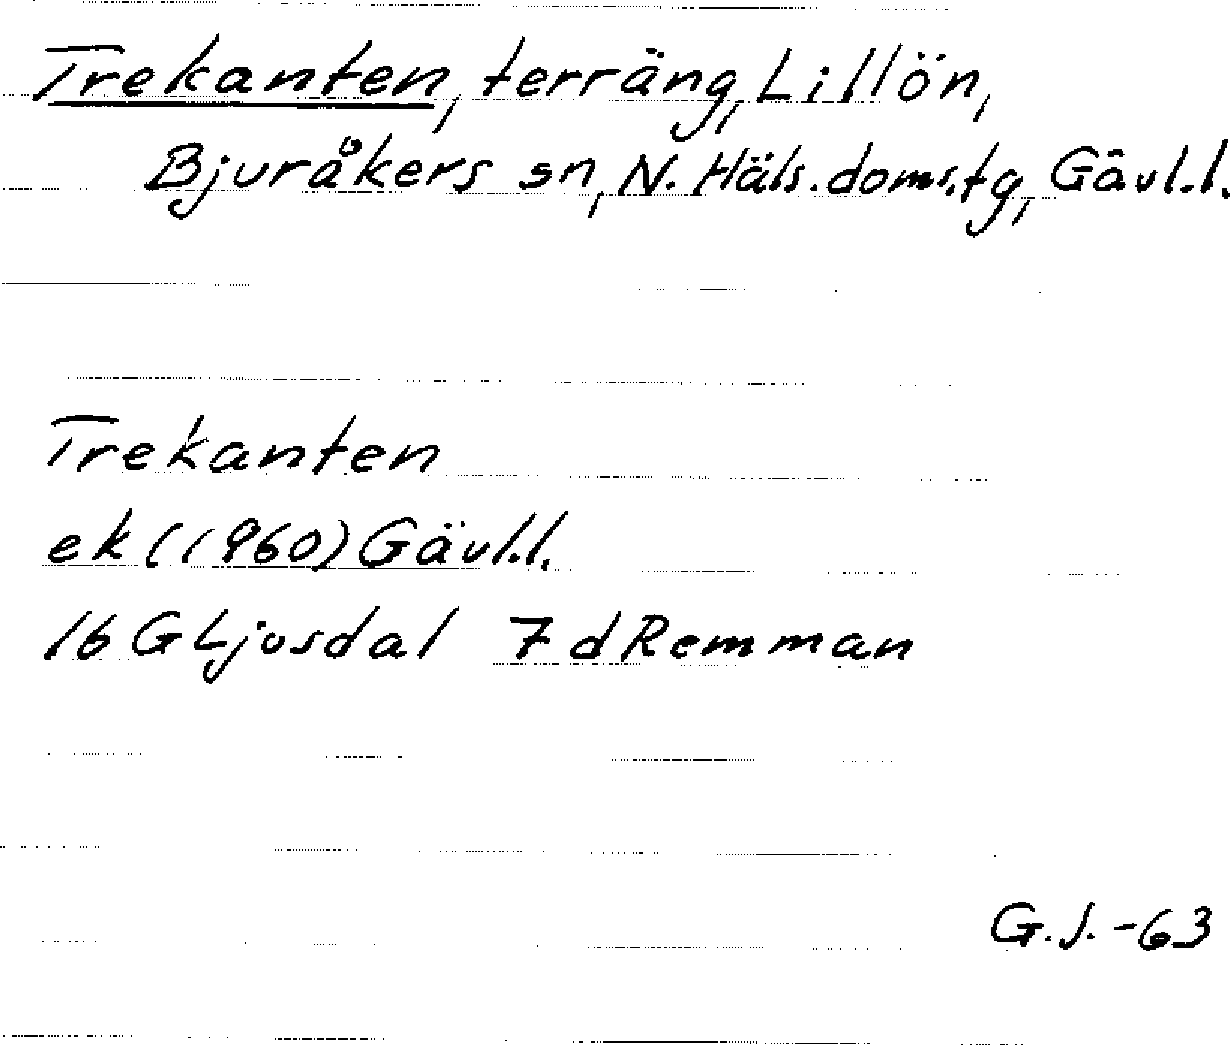 Trekanten, terräng, Lillön,
Bjuråkers sn, N. Häls. doms.tg, Gävl.l.
Trekanten
ek (1960) Gävl.l.
16 G Ljusdal 7 d Remman
G.J. -63